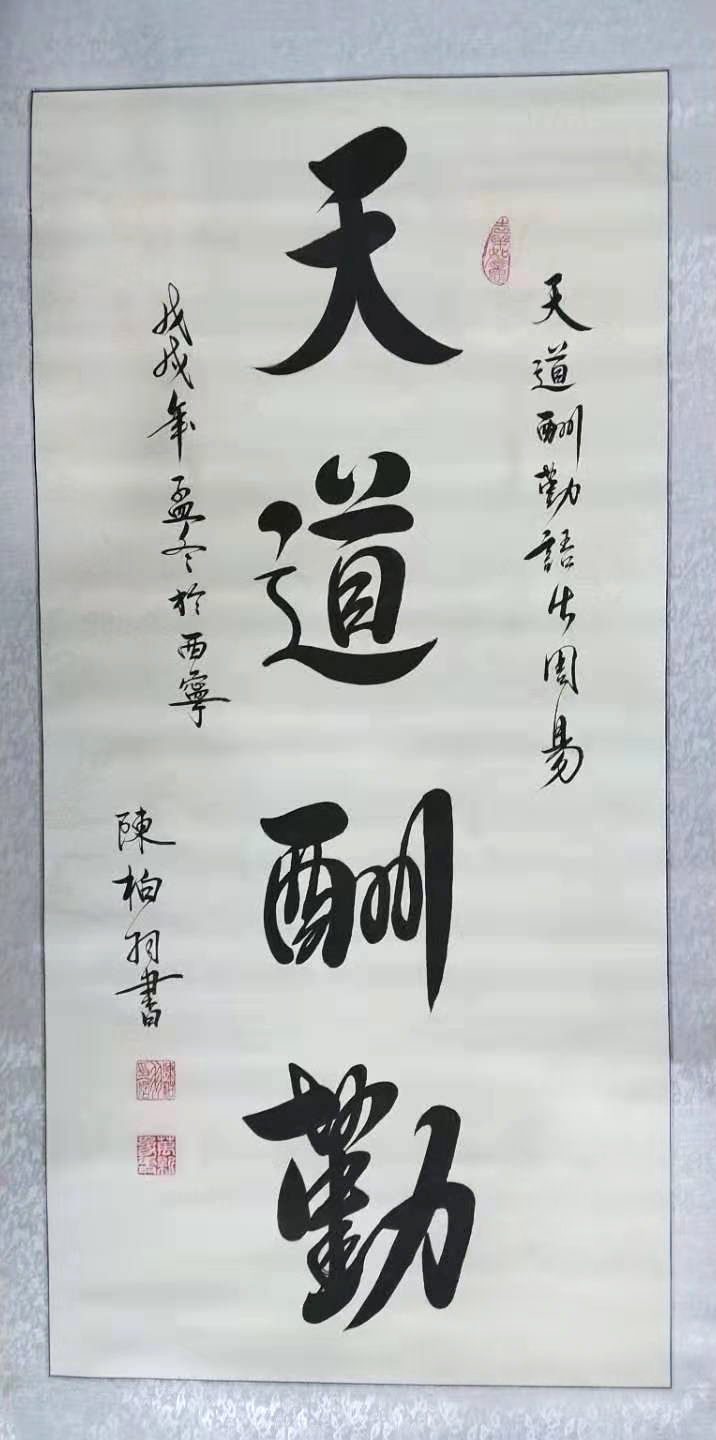 天道酬勤語出周易
天道酬勤
戊戌年孟冬於西寧
陳柏羽書